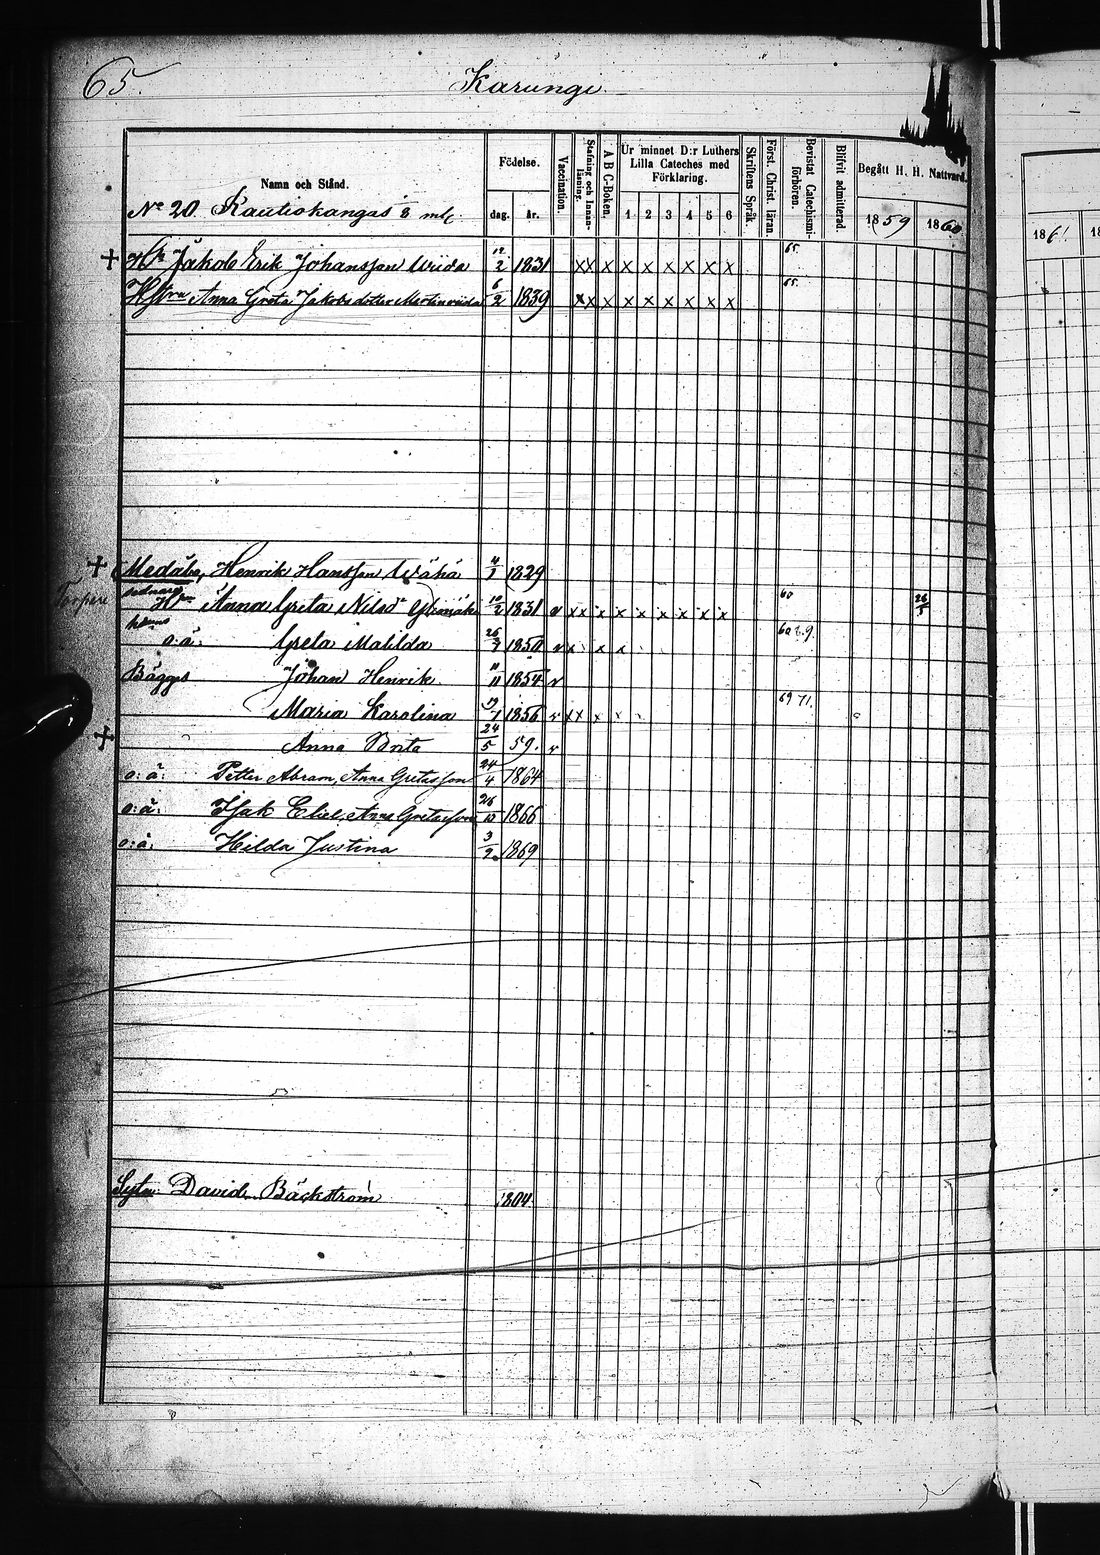 65.
Karungi
Namn och Stånd.
Födelse.
dag.
år.
Vaccination.
Stafning och Innan-läsning.
A B C-Boken.
Ur minnet D:r Luthers Lilla Cateches med Förklaring.
1 2 3 4 5 6
Skriftens Språk.
Först. Christ. läran.
Bevistat Catechismi-förhören.
Blifvit admitterad.
Begått H. H. Nattvard.
1859 1860
186!.
18
No 20. Rautiokangas
+ Jakob Erik Johansson 12/2 1831 xx x x x x x x x 65.
Hstru Anna Greta Jakobsdotter 6/2 1839 xx x x x x x x x 65.
+ Henrik Hansson 1829
Anna Greta Nilsdr 10/2 1831 v x x x x x x x x x 60 26/5
o.ä. Greta Matilda 1850 v x x x
Johan Henrik 11/11 1854 v
Maria Karolina 1856 v xx x 69 71.
+ Anna Brita 24/5 59. v
o:ä: Petter Abram, Anna Gretasson 24/4 1864
o:ä: Isak Eliel, Anna Gretasson 26/10 1866
o:ä: Hilda Justina 3/9 1869
David Bäckström 1804.